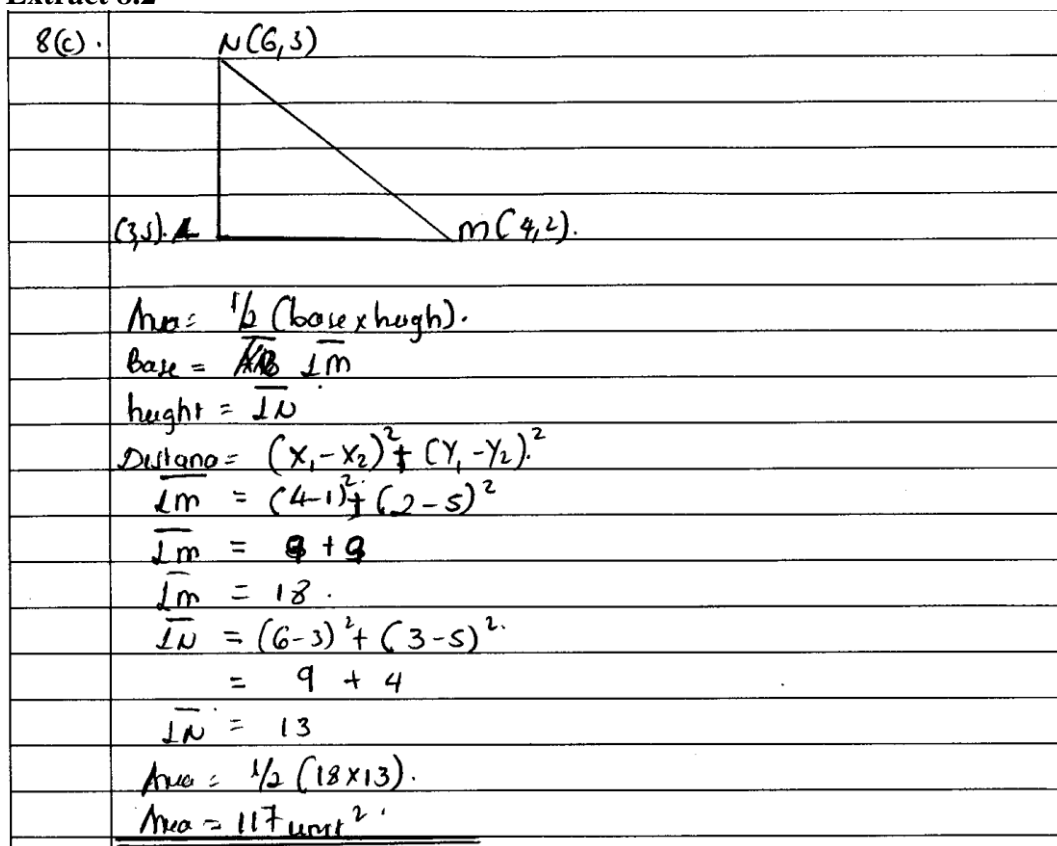 Extract 8.2
8(c).
N(6,3)
(3,5). L
M(4,2).
Area = 1/2 (base x heigh).
Base = L̅M̅
height = L̅N̅
Distanc = (X₁-X₂)² + (Y₁-Y₂).²
L̅M̅ = (4-1)² + (2-5)²
L̅M̅ = 9 + 9
L̅M̅ = 18.
L̅N̅ = (6-3)² + (3-5)².
= 9 + 4
L̅N̅ = 13
Area = 1/2 (18x13).
Area = 117 unit².